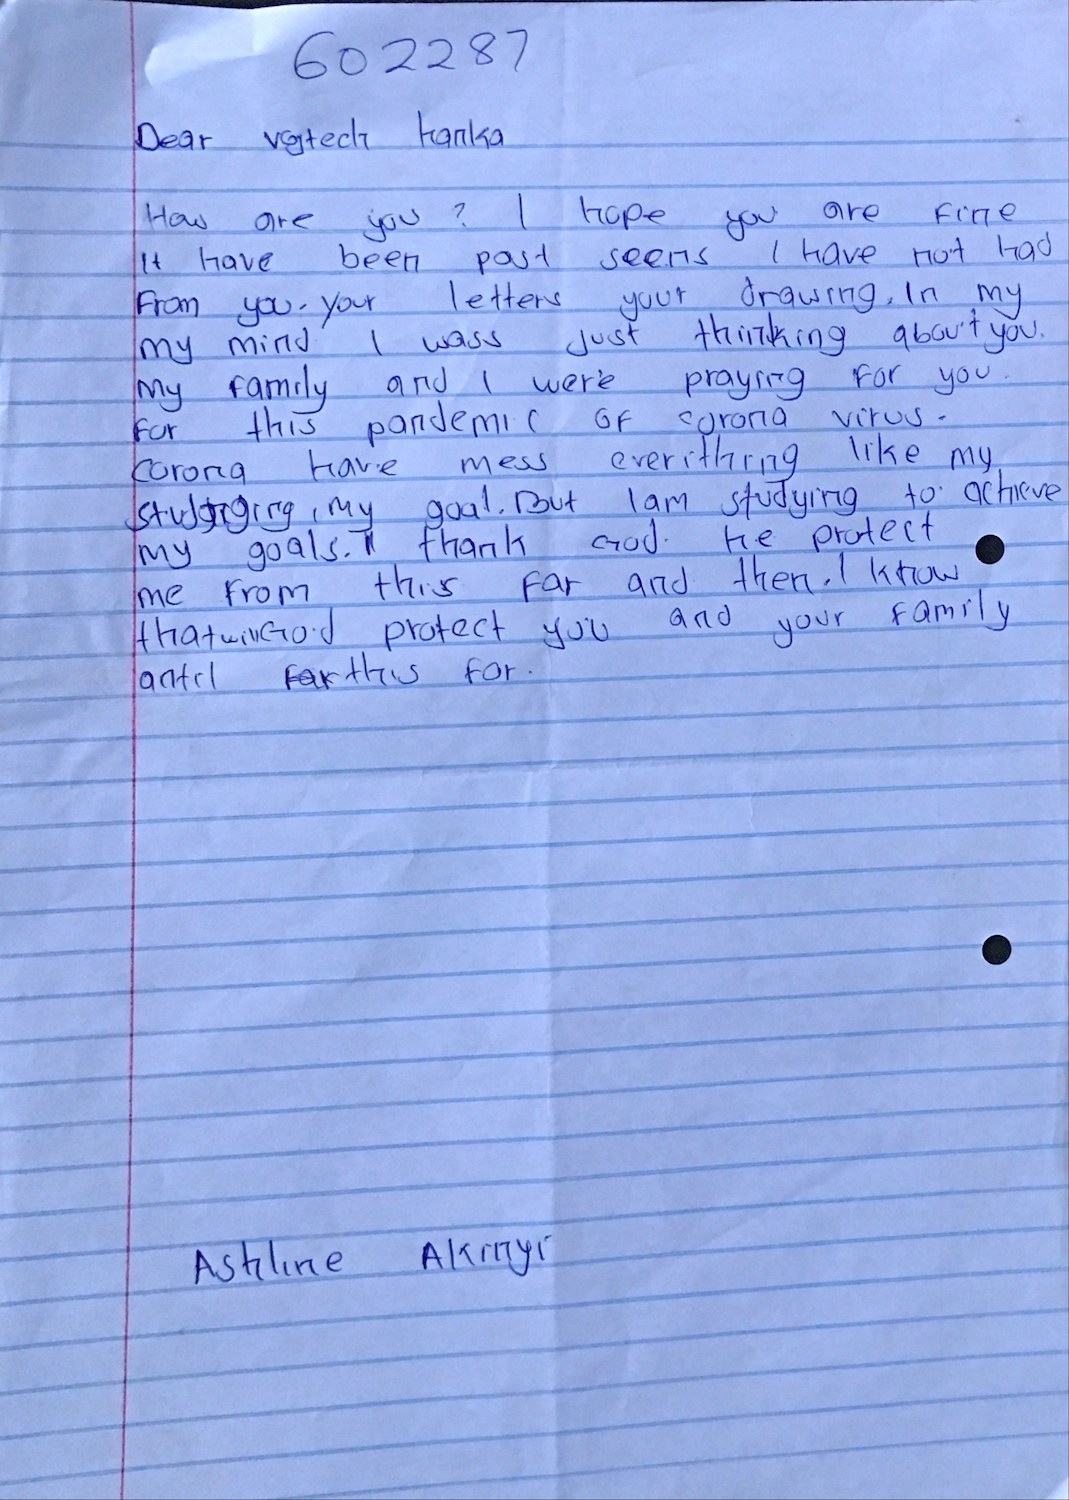 602287
Dear vojtech hanka
How are you ? I hope you are fine
It have been past seens I have not had
From you. your letters your drawing. In my
my mind I wass just thinking about you.
my family and I were praying for you.
For this pandemic OF corona virus.
corona have mess everithing like my
studying, my goal. But I am studying to achieve
my goals. I thank God. he protect
me From this far and then. I know
that will God protect you and your family
antil this for.
Ashline Akinyi